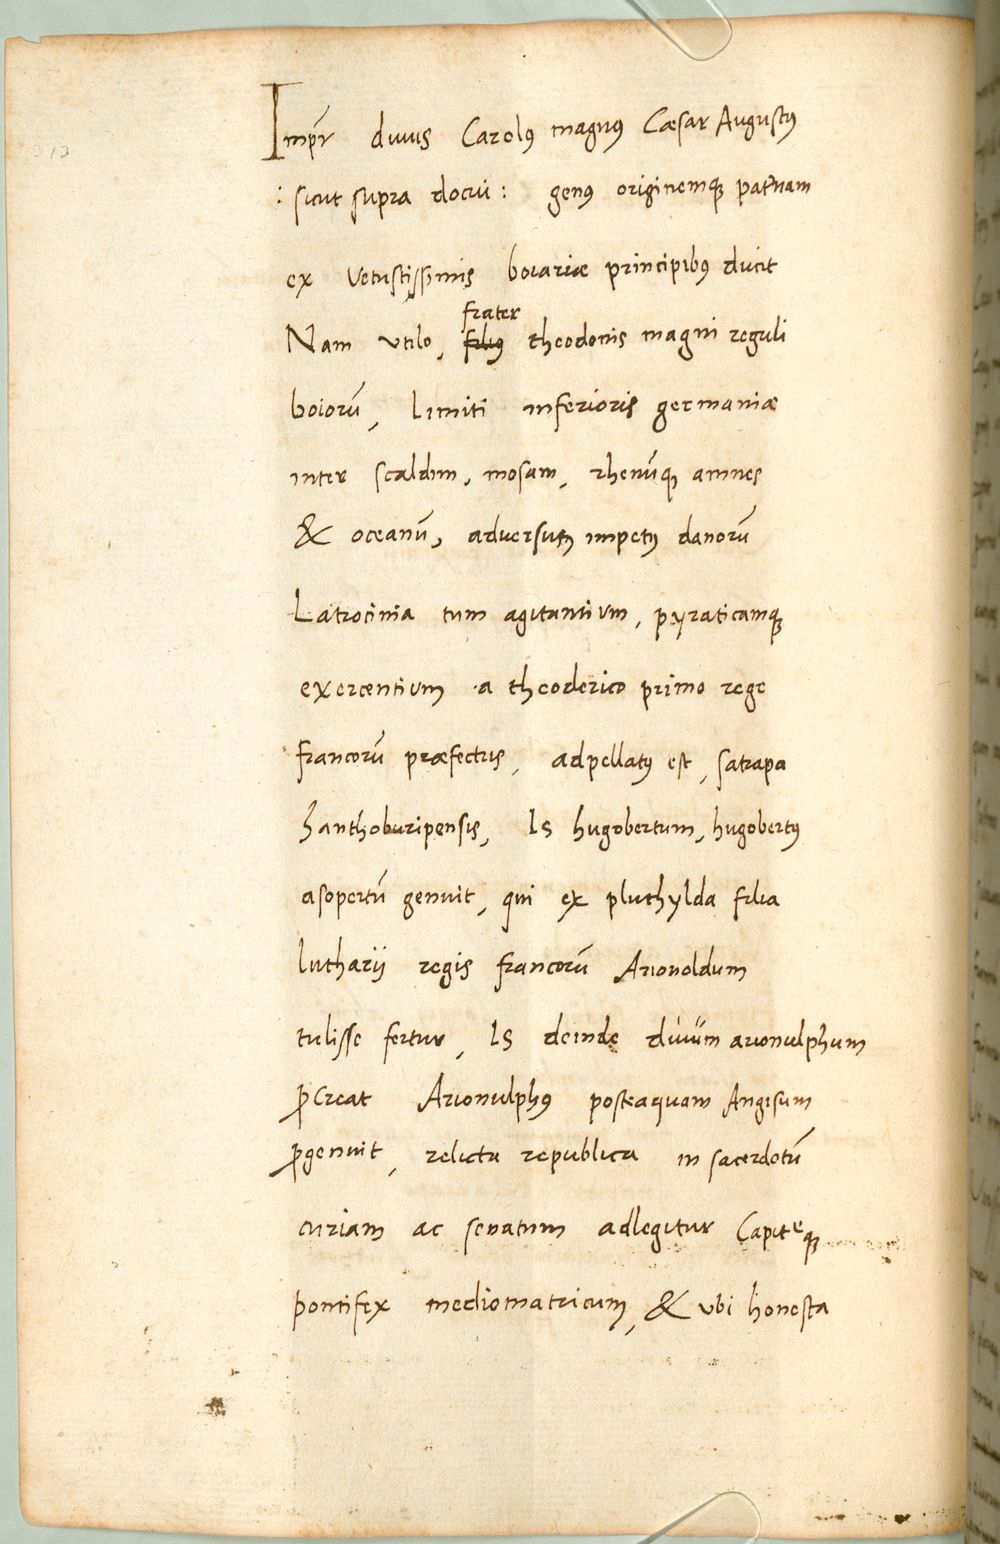 Imp̄r divus Carolꝰ magnꝰ Cæsar Augustꝰ
: sicut supra docui : genꝰ originemqꝫ pat̃nam
ex vetustissimis boiariæ principibꝰ ducit
frater
Nam utilo, filiꝰ theodonis magni reguli
boiorū, Limiti inferioris germaniæ
inter scaldim, mosam, rhenūqꝫ amnes
& oceanū, adversum impetꝰ danorū
Latrocinia tum agitantium, pyraticamqꝫ
exercentium a theoderico primo rege
francorū præfectus, adpellatꝰ est, satrapa
hanthoburipensis, Is hugobertum, hugobertꝰ
asopertū genuit, qui ex pluthylda filia
lutharii regis francorū Arionoldum
tulisse fertur, Is deinde divum arionulphum
ꝓcreat Arionulphꝰ posteaquam Angisum
ꝓgenuit, relicta republica in sacerdotū
curiam ac senatum adlegitur Capiteqꝫ
pontifex mediomatricum, & ubi honesta